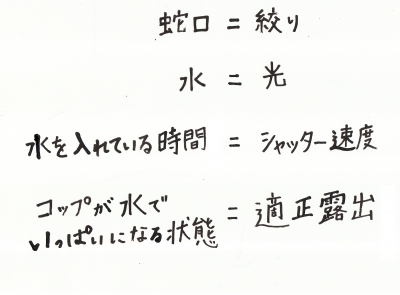 蛇口 = 絞り
水 = 光
水を入れている時間 = シャッター速度
コップが水で
いっぱいになる状態 = 適正露出